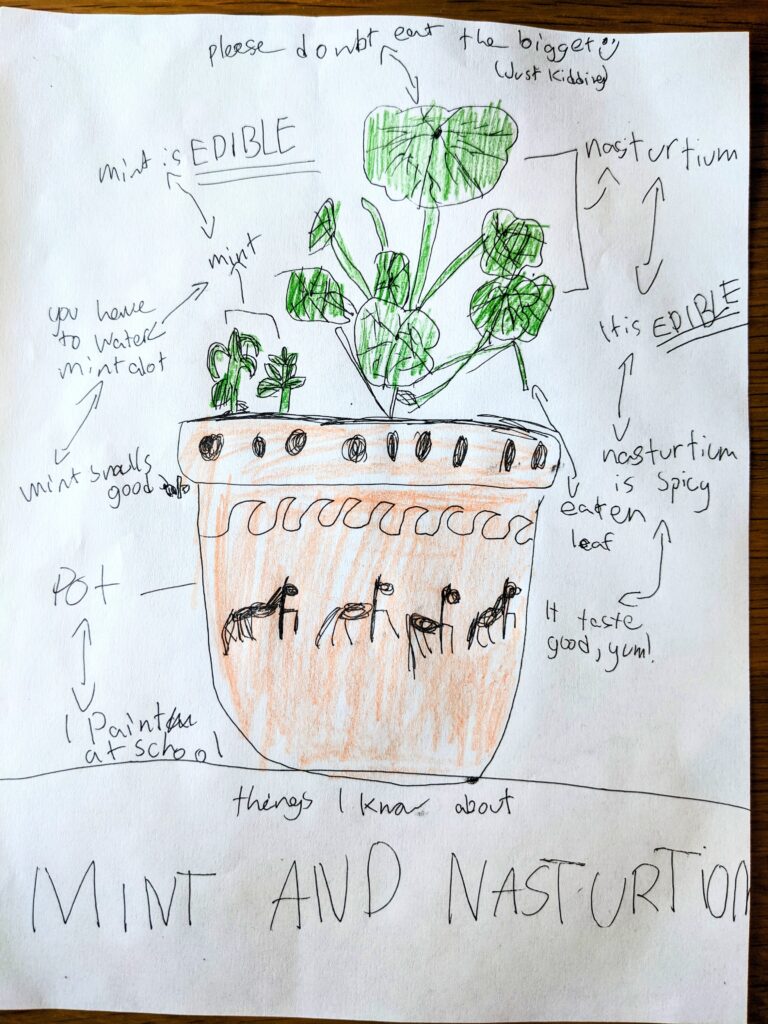 please donbt eat the bigget
(Just Kidding)
mint is EDIBLE
nasturtium
mint
you have
to water
mint alot
It is EDIBLE
mint smells
good
nasturtium
is spicy
eaten
leaf
Pot
It taste
good, yum!
I Paint
at school
things I know about
MINT AND NASTURTION